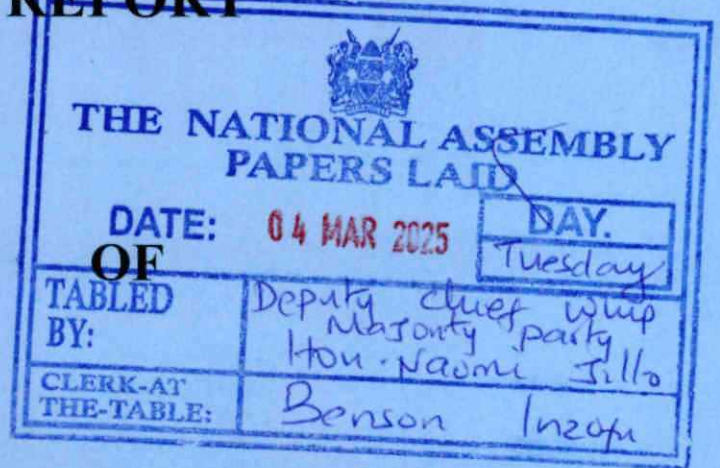 REPORT
THE NATIONAL ASSEMBLY
PAPERS LAID
DATE: 04 MAR 2025
DAY.
Tuesday
OF
TABLED
BY:
Deputy chief whip
Majority party
Hon. Naomi Jillo
CLERK-AT
THE-TABLE:
Benson